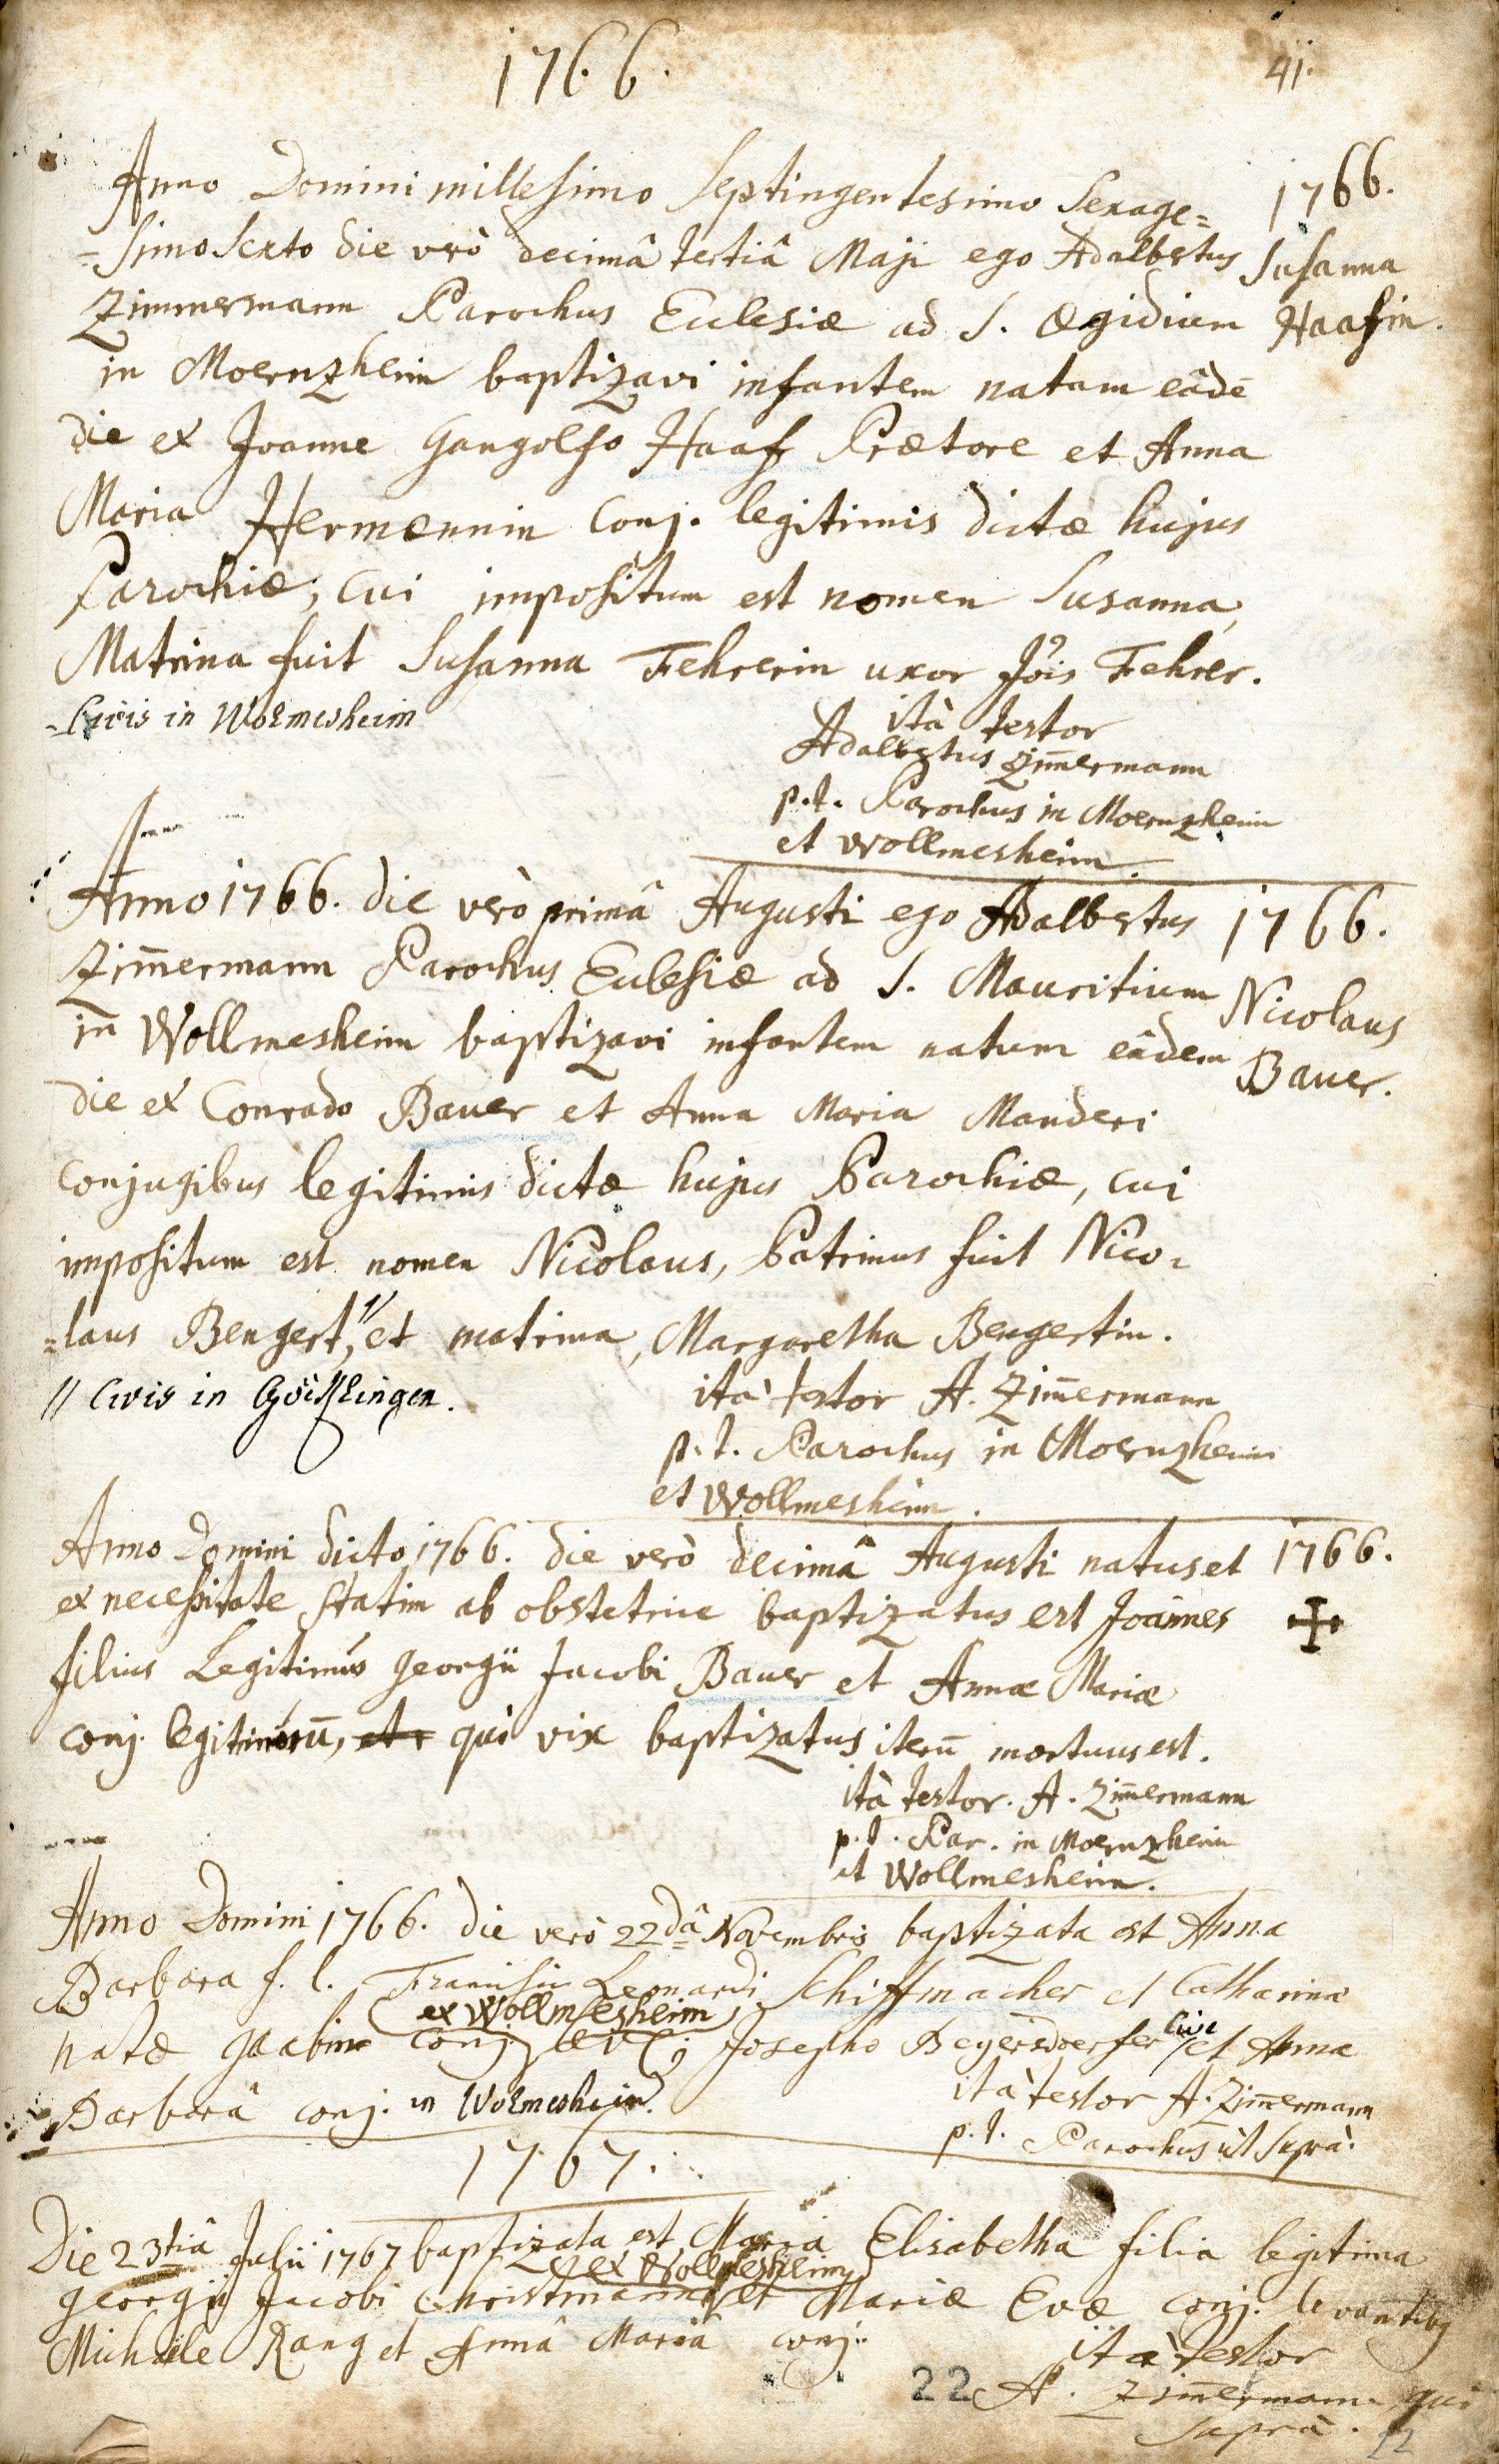 1766.
41.
Anno Domini millesimo septingentesimo sexage=
=simo sexto die verò decimâ tertiâ Maji ego Adalbertus
1766.
Susanna
Haafin.
Zimmermann Parochus Ecclesiæ ad S. Ægidium
in Moernzheim baptizavi infantem natam eâdē
die ex Joanne Gangolfo Haaf Prætore et Anna
Maria Hermannin conj. legitimis dictæ hujus
Parochiæ; cui impositum est nomen Susanna,
Matrina fuit Susanna Fehrerin uxor Jōis Fehrer.
-Civis in Wolmesheim
ità testor
Adalbertus Zim̄ermann
p.t. Parochus in Moernzheim
et Wollmesheim.
Anno 1766. die verò primâ Augusti ego Adalbertus
1766.
Nicolaus
Bauer.
Zim̄ermann Parochus Ecclesiæ ad S. Mauritium
in Wollmesheim baptizavi infantem natum eâdem
die ex Conrado Bauer et Anna Maria Manderi
conjugibus legitimis dictæ hujus Parochiæ, cui
impositum est nomen Nicolaus, Patrinus fuit Nico=
=laus Bengert,// et matrina, Margaretha Bengertin.
// Civis in Göcklingen.
ità testor A. Zim̄ermann
p.t. Parochus in Moernzheim
et Wollmesheim.
Anno Domini dicto 1766. die verò decimâ Augusti natus et
1766.
ex necessitate statim ab obstetrice baptizatus est Joannes
filius Legitimus Georgii Jacobi Bauer et Annæ Mariæ
conj. legitimorū, et qui vix baptizatus iterū mortuus est.
ità testor. A. Zim̄ermann
p.t. Par. in Moernzheim
et Wollmesheim.
Anno Domini 1766. die verò 22dâ Novembris baptizata est Anna
Barbara f. l. Francisci Leonardi Schiffmacher et Catharinæ
ex Wollmesheim
natæ conj. Josepho Beyersdoerfer cive et Anna
Barbarâ conj. in Wolmesheim.
ità testor A. Zim̄ermann
p.t. Parochus ut suprà.
1767.
Die 23tiâ Julii 1767 baptizata est Maria Elisabetha filia legitima
ex Wollmesheim
Georgii Jacobi Christmann et Mariæ Evæ conj. levantibq
Michaële Rang et Annâ Mariâ conj.
ità testor
A. Zim̄ermann qui
suprà.
22
22